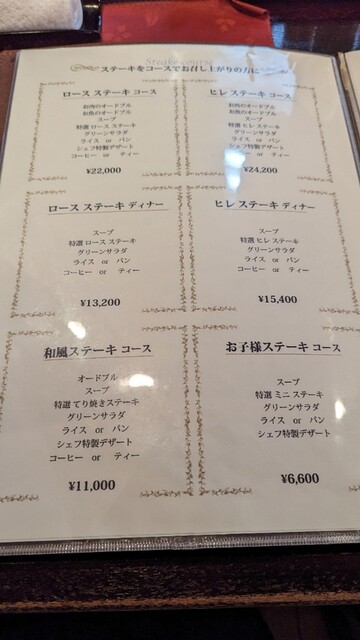 Steak course
ステーキをコースでお召し上がりの方に
ロース ステーキ コース
お肉のオードブル
お魚のオードブル
スープ
特選 ロース ステーキ
グリーンサラダ
ライス or パン
シェフ特製デザート
コーヒー or ティー
¥22,000
ヒレ ステーキ コース
お肉のオードブル
お魚のオードブル
スープ
特選 ヒレ ステーキ
グリーンサラダ
ライス or パン
シェフ特製デザート
コーヒー or ティー
¥24,200
ロース ステーキ ディナー
スープ
特選 ロース ステーキ
グリーンサラダ
ライス or パン
コーヒー or ティー
¥13,200
ヒレ ステーキ ディナー
スープ
特選 ヒレ ステーキ
グリーンサラダ
ライス or パン
コーヒー or ティー
¥15,400
和風ステーキ コース
オードブル
スープ
特選 てり焼きステーキ
グリーンサラダ
ライス or パン
シェフ特製デザート
コーヒー or ティー
¥11,000
お子様ステーキ コース
スープ
特選 ミニ ステーキ
グリーンサラダ
ライス or パン
シェフ特製デザート
¥6,600